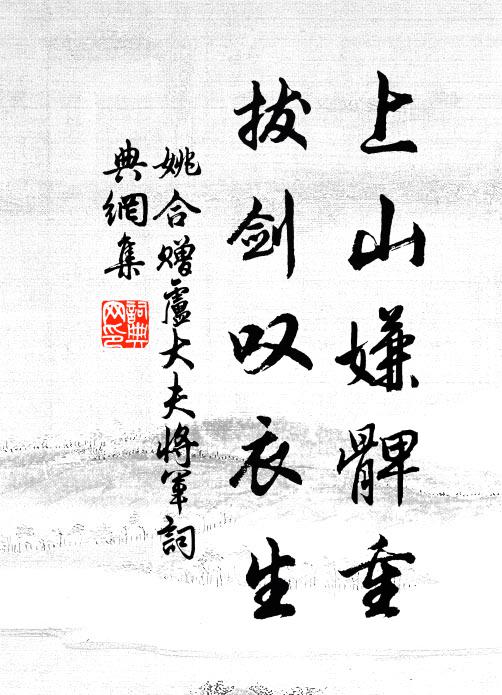 上山嫌髀重
拔剑叹衣生
姚合赠卢大夫将军詞
典網集
詞典网印